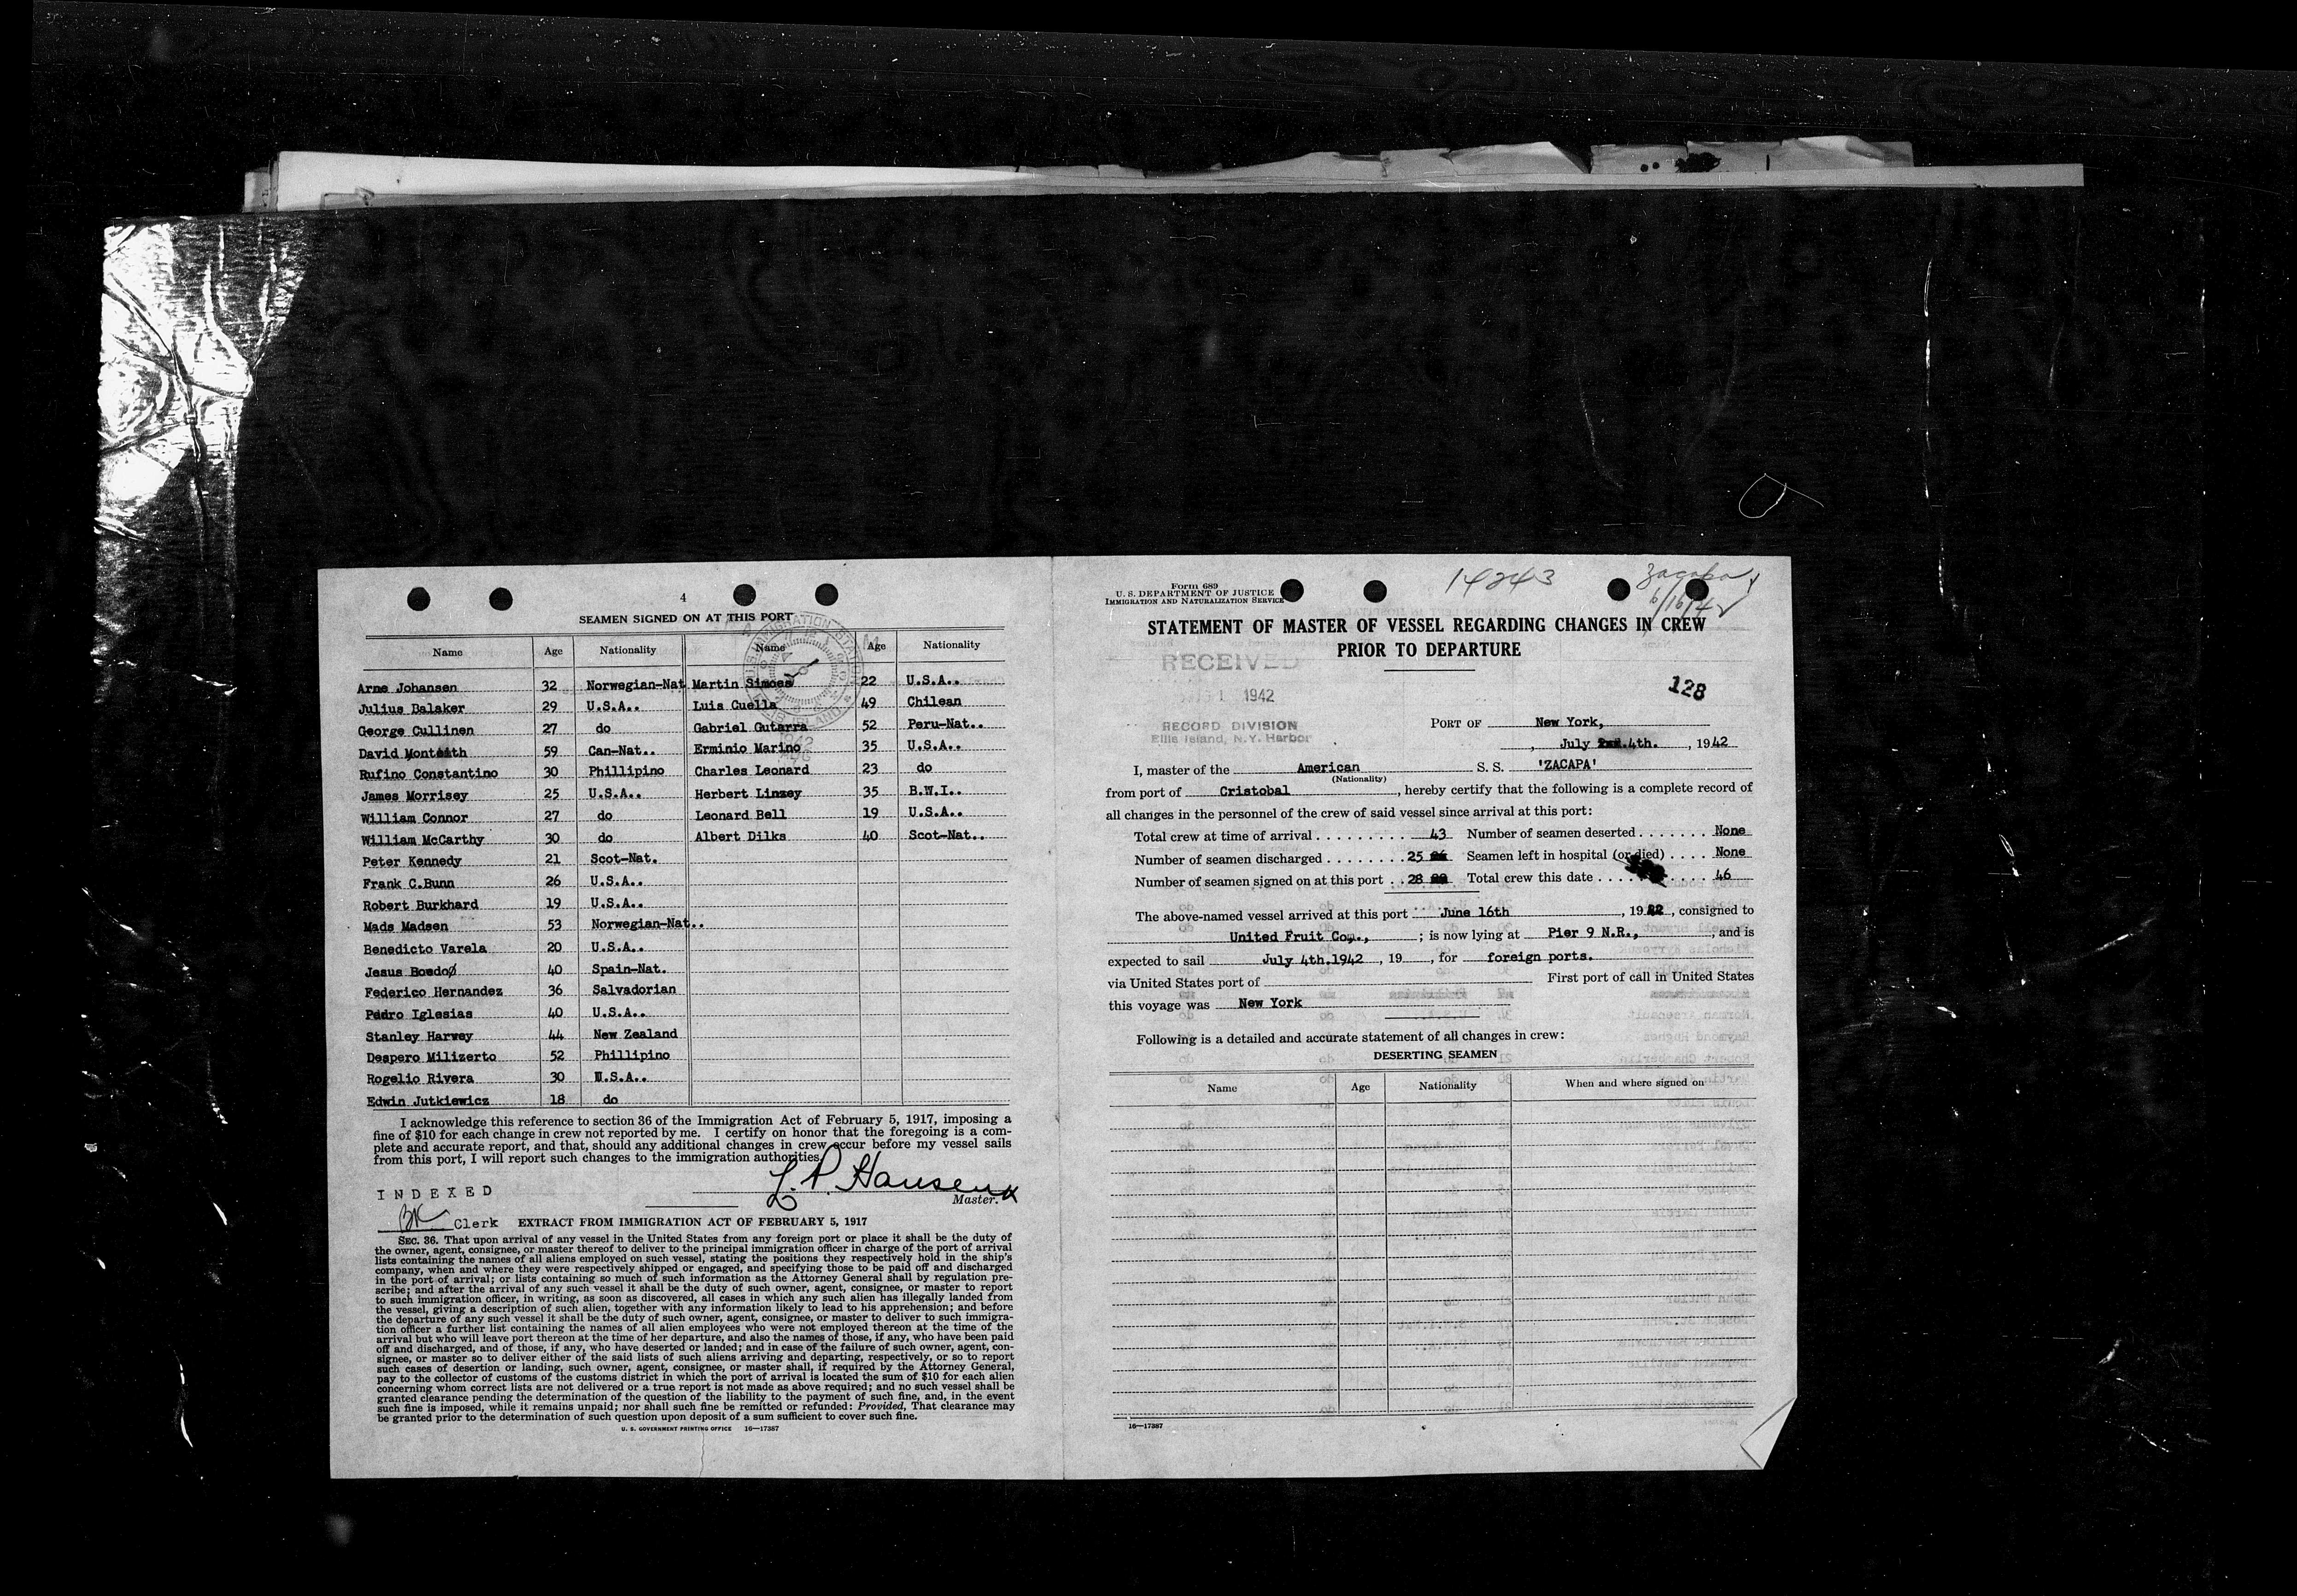 4
SEAMEN SIGNED ON AT THIS PORT
Name Age Nationality Name Age Nationality
Arne Johansen 32 Norwegian-Nat Martin Simoes 22 U.S.A..
Julius Balaker 29 U.S.A.. Luis Cuella 49 Chilean
George Cullinen 27 do Gabriel Gutarra 52 Peru-Nat..
David Monteith 59 Can-Nat.. Erminio Marino 35 U.S.A..
Rufino Constantino 30 Phillipino Charles Leonard 23 do
James Morrisey 25 U.S.A.. Herbert Linzey 35 B.W.I..
William Connor 27 do Leonard Bell 19 U.S.A..
William McCarthy 30 do Albert Dilks 40 Scot-Nat..
Peter Kennedy 21 Scot-Nat.
Frank C.Bunn 26 U.S.A..
Robert Burkhard 19 U.S.A..
Mads Madsen 53 Norwegian-Nat..
Benedicto Varela 20 U.S.A..
Jesus Boedo 40 Spain-Nat.
Federico Hernandez 36 Salvadorian
Pedro Iglesias 40 U.S.A..
Stanley Harvey 44 New Zealand
Despero Milizerto 52 Phillipino
Rogelio Rivera 30 U.S.A..
Edwin Jutkiewicz 18 do
I acknowledge this reference to section 36 of the Immigration Act of February 5, 1917, imposing a
fine of $10 for each change in crew not reported by me. I certify on honor that the foregoing is a com-
plete and accurate report, and that, should any additional changes in crew occur before my vessel sails
from this port, I will report such changes to the immigration authorities.
L. P. Hansen
Master.
INDEXED
BK Clerk
EXTRACT FROM IMMIGRATION ACT OF FEBRUARY 5, 1917
SEC. 36. That upon arrival of any vessel in the United States from any foreign port or place it shall be the duty of
the owner, agent, consignee, or master thereof to deliver to the principal immigration officer in charge of the port of arrival
lists containing the names of all aliens employed on such vessel, stating the positions they respectively hold in the ship's
company, when and where they were respectively shipped or engaged, and specifying those to be paid off and discharged
in the port of arrival; or lists containing so much of such information as the Attorney General shall by regulation pre-
scribe; and after the arrival of any such vessel it shall be the duty of such owner, agent, consignee, or master to report
to such immigration officer, in writing, as soon as discovered, all cases in which any such alien has illegally landed from
the vessel, giving a description of such alien, together with any information likely to lead to his apprehension; and before
the departure of any such vessel it shall be the duty of such owner, agent, consignee, or master to deliver to such immigra-
tion officer a further list containing the names of all alien employees who were not employed thereon at the time of the
arrival but who will leave port thereon at the time of her departure, and also the names of those, if any, who have been paid
off and discharged, and of those, if any, who have deserted or landed; and in case of the failure of such owner, agent, con-
signee, or master so to deliver either of the said lists of such aliens arriving and departing, respectively, or so to report
such cases of desertion or landing, such owner, agent, consignee, or master shall, if required by the Attorney General,
pay to the collector of customs of the customs district in which the port of arrival is located the sum of $10 for each alien
concerning whom correct lists are not delivered or a true report is not made as above required; and no such vessel shall be
granted clearance pending the determination of the question of the liability to the payment of such fine, and, in the event
such fine is imposed, while it remains unpaid; nor shall such fine be remitted or refunded: Provided, That clearance may
be granted prior to the determination of such question upon deposit of a sum sufficient to cover such fine.
U. S. GOVERNMENT PRINTING OFFICE 16—17387
Form 689
U. S. DEPARTMENT OF JUSTICE
IMMIGRATION AND NATURALIZATION SERVICE
14243
Zacapa
6/16/42
STATEMENT OF MASTER OF VESSEL REGARDING CHANGES IN CREW
PRIOR TO DEPARTURE
RECEIVED
1 1942
RECORD DIVISION
Ellis Island, N.Y. Harbor
128
PORT OF New York,
, July 4th. , 1942
I, master of the American S. S. 'ZACAPA'
(Nationality)
from port of Cristobal , hereby certify that the following is a complete record of
all changes in the personnel of the crew of said vessel since arrival at this port:
Total crew at time of arrival . . . . . . . . . . 43 Number of seamen deserted . . . . . . . None
Number of seamen discharged . . . . . . . . 25 Seamen left in hospital (or died) . . . . None
Number of seamen signed on at this port . . 28 Total crew this date . . . . . . . . . . 46
The above-named vessel arrived at this port June 16th , 1942 , consigned to
United Fruit Co., ; is now lying at Pier 9 N.R., , and is
expected to sail July 4th.1942 , 19 , for foreign ports.
via United States port of First port of call in United States
this voyage was New York
Following is a detailed and accurate statement of all changes in crew:
DESERTING SEAMEN
Name Age Nationality When and where signed on
16—17387